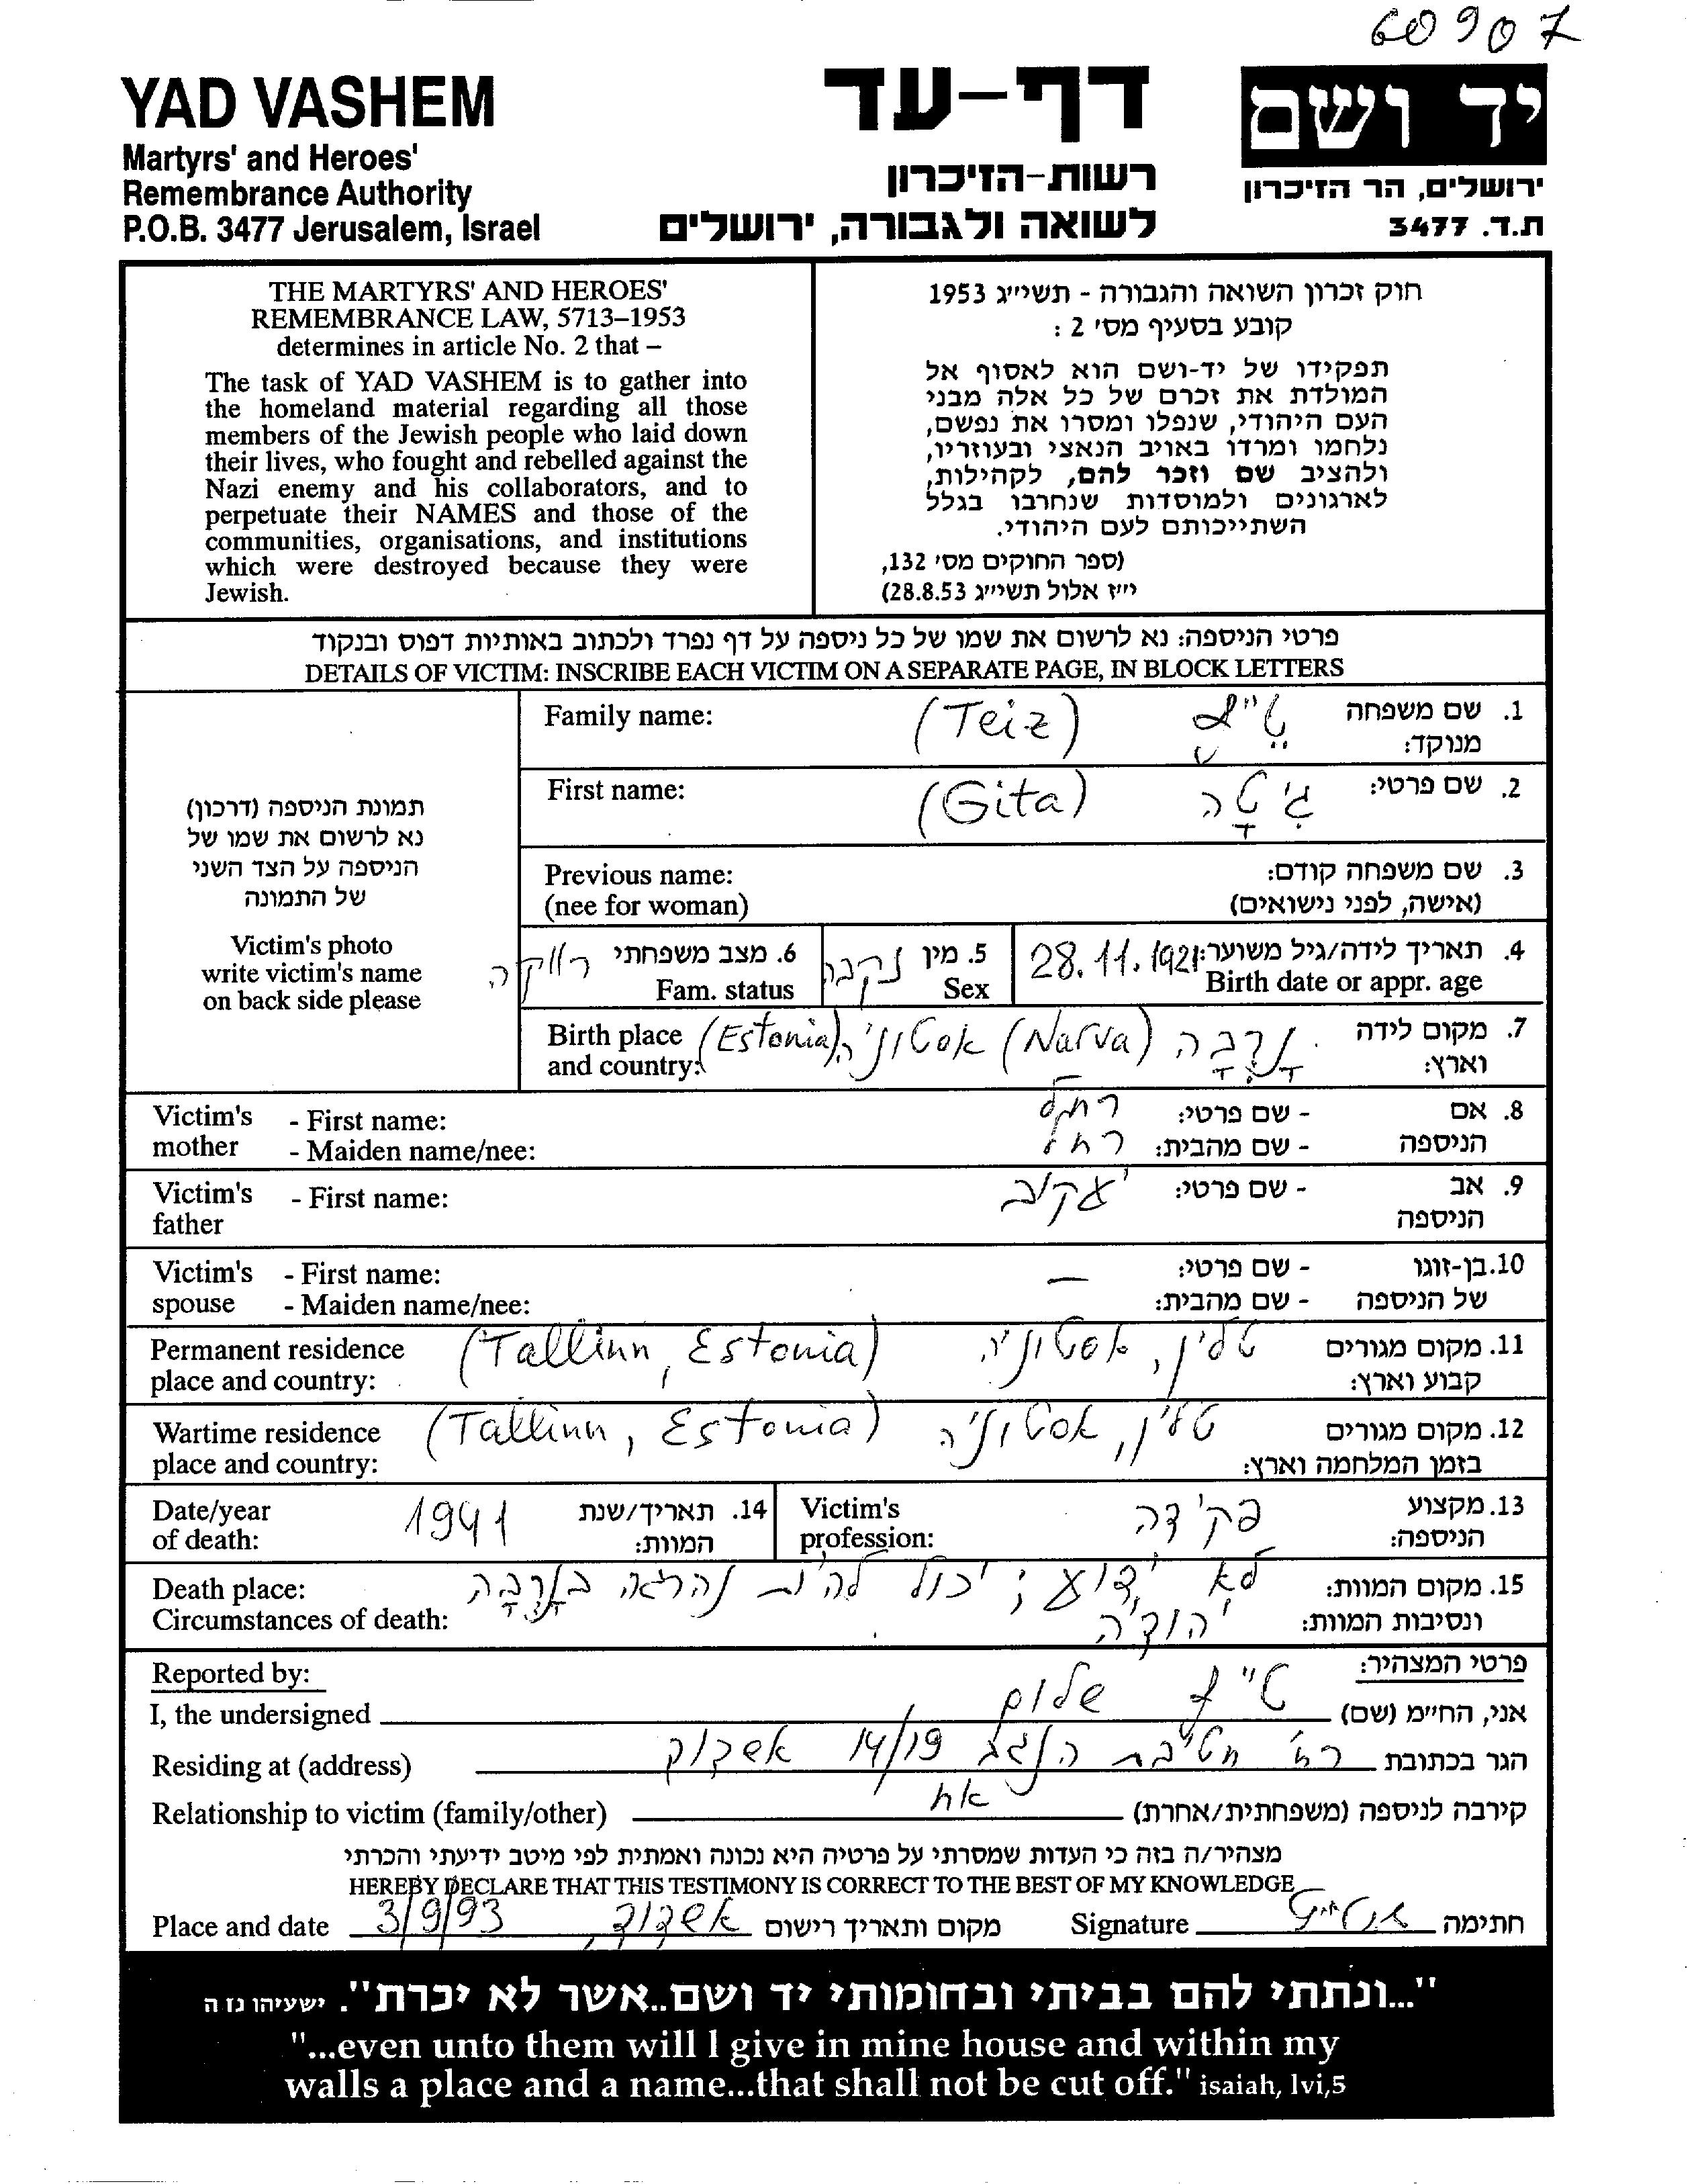 60907
YAD VASHEM
Martyrs' and Heroes'
Remembrance Authority
P.O.B. 3477 Jerusalem, Israel
דף-עד
רשות-הזיכרון
לשואה ולגבורה, ירושלים
יד ושם
ירושלים, הר הזיכרון
ת.ד. 3477
THE MARTYRS' AND HEROES'
REMEMBRANCE LAW, 5713–1953
determines in article No. 2 that –
The task of YAD VASHEM is to gather into
the homeland material regarding all those
members of the Jewish people who laid down
their lives, who fought and rebelled against the
Nazi enemy and his collaborators, and to
perpetuate their NAMES and those of the
communities, organisations, and institutions
which were destroyed because they were
Jewish.
חוק זכרון השואה והגבורה - תשי״ג 1953
קובע בסעיף מס׳ 2 :
תפקידו של יד-ושם הוא לאסוף אל
המולדת את זכרם של כל אלה מבני
העם היהודי, שנפלו ומסרו את נפשם,
נלחמו ומרדו באויב הנאצי ובעוזריו,
ולהציב שם וזכר להם, לקהילות,
לארגונים ולמוסדות שנחרבו בגלל
השתייכותם לעם היהודי.
(ספר החוקים מס׳ 132,
י״ז אלול תשי״ג 28.8.53)
פרטי הניספה: נא לרשום את שמו של כל ניספה על דף נפרד ולכתוב באותיות דפוס ובנקוד
DETAILS OF VICTIM: INSCRIBE EACH VICTIM ON A SEPARATE PAGE, IN BLOCK LETTERS
תמונת הניספה (דרכון)
נא לרשום את שמו של
הניספה על הצד השני
של התמונה
Victim's photo
write victim's name
on back side please
1. שם משפחה טי״ץ (Teiz) Family name:
מנוקד:
2. שם פרטי: גיטָה (Gita) First name:
3. שם משפחה קודם: Previous name:
(אישה, לפני נישואים) (nee for woman)
4. תאריך לידה/גיל משוער: 28.11.1921
Birth date or appr. age
5. מין נקבה
Sex
6. מצב משפחתי רווקה
Fam. status
7. מקום לידה נַרְבָה (Narva) אסטוניה (Estonia) Birth place
וארץ: and country:
8. אם - שם פרטי: רחל Victim's - First name:
הניספה - שם מהבית: mother - Maiden name/nee:
9. אב - שם פרטי: יעקוב Victim's - First name:
הניספה father
10. בן-זוגו - שם פרטי: — Victim's - First name:
של הניספה - שם מהבית: spouse - Maiden name/nee:
11. מקום מגורים טלין, אסטוניה (Tallinn, Estonia) Permanent residence
קבוע וארץ: place and country:
12. מקום מגורים טלין, אסטוניה (Tallinn, Estonia) Wartime residence
בזמן המלחמה וארץ: place and country:
13. מקצוע פקידה Victim's
הניספה: profession:
14. תאריך/שנת 1941 Date/year
המוות: of death:
15. מקום המוות: לא ידוע; יכול להיות נהרגה בנַרְבָה Death place:
ונסיבות המוות: יהודיה Circumstances of death:
פרטי המצהיר: Reported by:
אני, החי״מ (שם) טי״ץ שלום I, the undersigned
הגר בכתובת רח׳ חטיבת הנגב 14/19 אשדוד Residing at (address)
קירבה לניספה (משפחתית/אחרת) אח Relationship to victim (family/other)
מצהיר/ה בזה כי העדות שמסרתי על פרטיה היא נכונה ואמתית לפי מיטב ידיעתי והכרתי
HEREBY DECLARE THAT THIS TESTIMONY IS CORRECT TO THE BEST OF MY KNOWLEDGE
חתימה Signature מקום ותאריך רישום אשדוד, 3/9/93 Place and date
"...ונתתי להם בביתי ובחומותי יד ושם..אשר לא יכרת". ישעיהו נז ה
"...even unto them will I give in mine house and within my
walls a place and a name...that shall not be cut off." isaiah, lvi,5